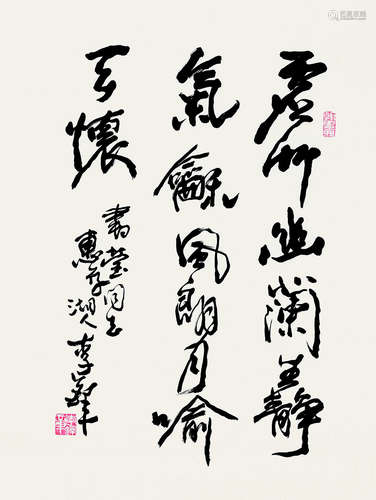 虚竹幽蘭生静
氣龢風朗月喻
天懷
書瑩同志
惠存湖人李鐸